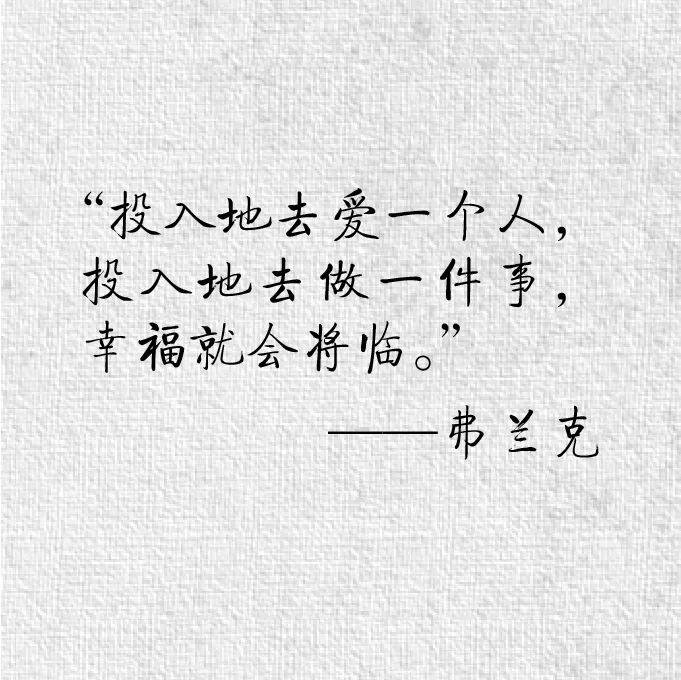 “投入地去爱一个人，
投入地去做一件事，
幸福就会将临。”
——弗兰克